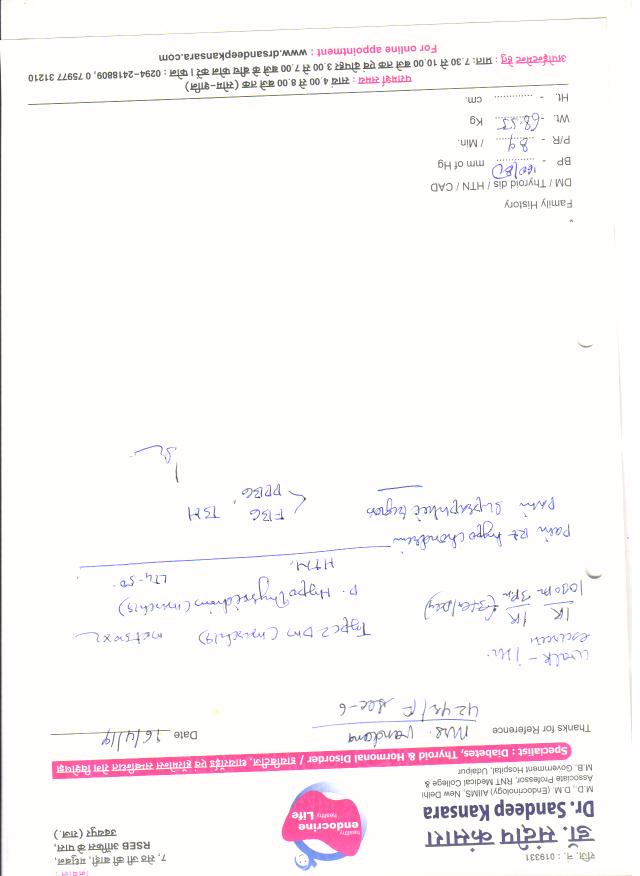 रजि. नं. : 019331
डॉ. संदीप कंसारा
Dr. Sandeep Kansara
M.D., D.M. (Endocrinology) AIIMS, New Delhi
Associate Professor, RNT Medical College &
M.B. Government Hospital, Udaipur
healthy
endocrine
healthy
Life
निवास :
7, सेठ जी की बाड़ी, मधुबन,
RSEB ऑफिस के पास,
उदयपुर (राज.)
Specialist : Diabetes, Thyroid & Hormonal Disorder / डायबिटीज, थायरॉइड एवं हॉर्मोन्स सम्बन्धित रोग विशेषज्ञ
Thanks for Reference Mrs. Vandana Date 16/4/19
42 yr/F Sec-6
walk - 1 hr.
Type 2 DM (March 19)
P. Hypothyroidism (March 19) LT4-50
HTN.
Pain Rt hypochondrium
Pain Suprapubic region
FBG
PPBG
Family History
DM / Thyroid dis / HTN / CAD
BP - 160/80 mm of Hg
P/R - 84 / Min.
Wt. - 68.55 Kg
Ht. - .............. cm.
परामर्श समय : सायं 4.00 से 8.00 बजे तक (सोम-शनि)
अपोईन्टमेन्ट हेतु : प्रातः 7.30 से 10.00 बजे तक एवं दोपहर 3.00 से 7.00 बजे के बीच फोन करें। फोन : 0294-2418809, 0 75977 31210
For online appointment : www.drsandeepkansara.com